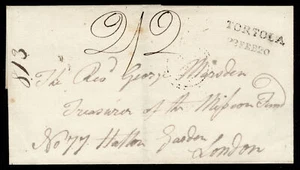 2/2
TORTOLA
The Revd George Marsden
Treasurer of the Mission Fund
No 77 Hatton Garden
London